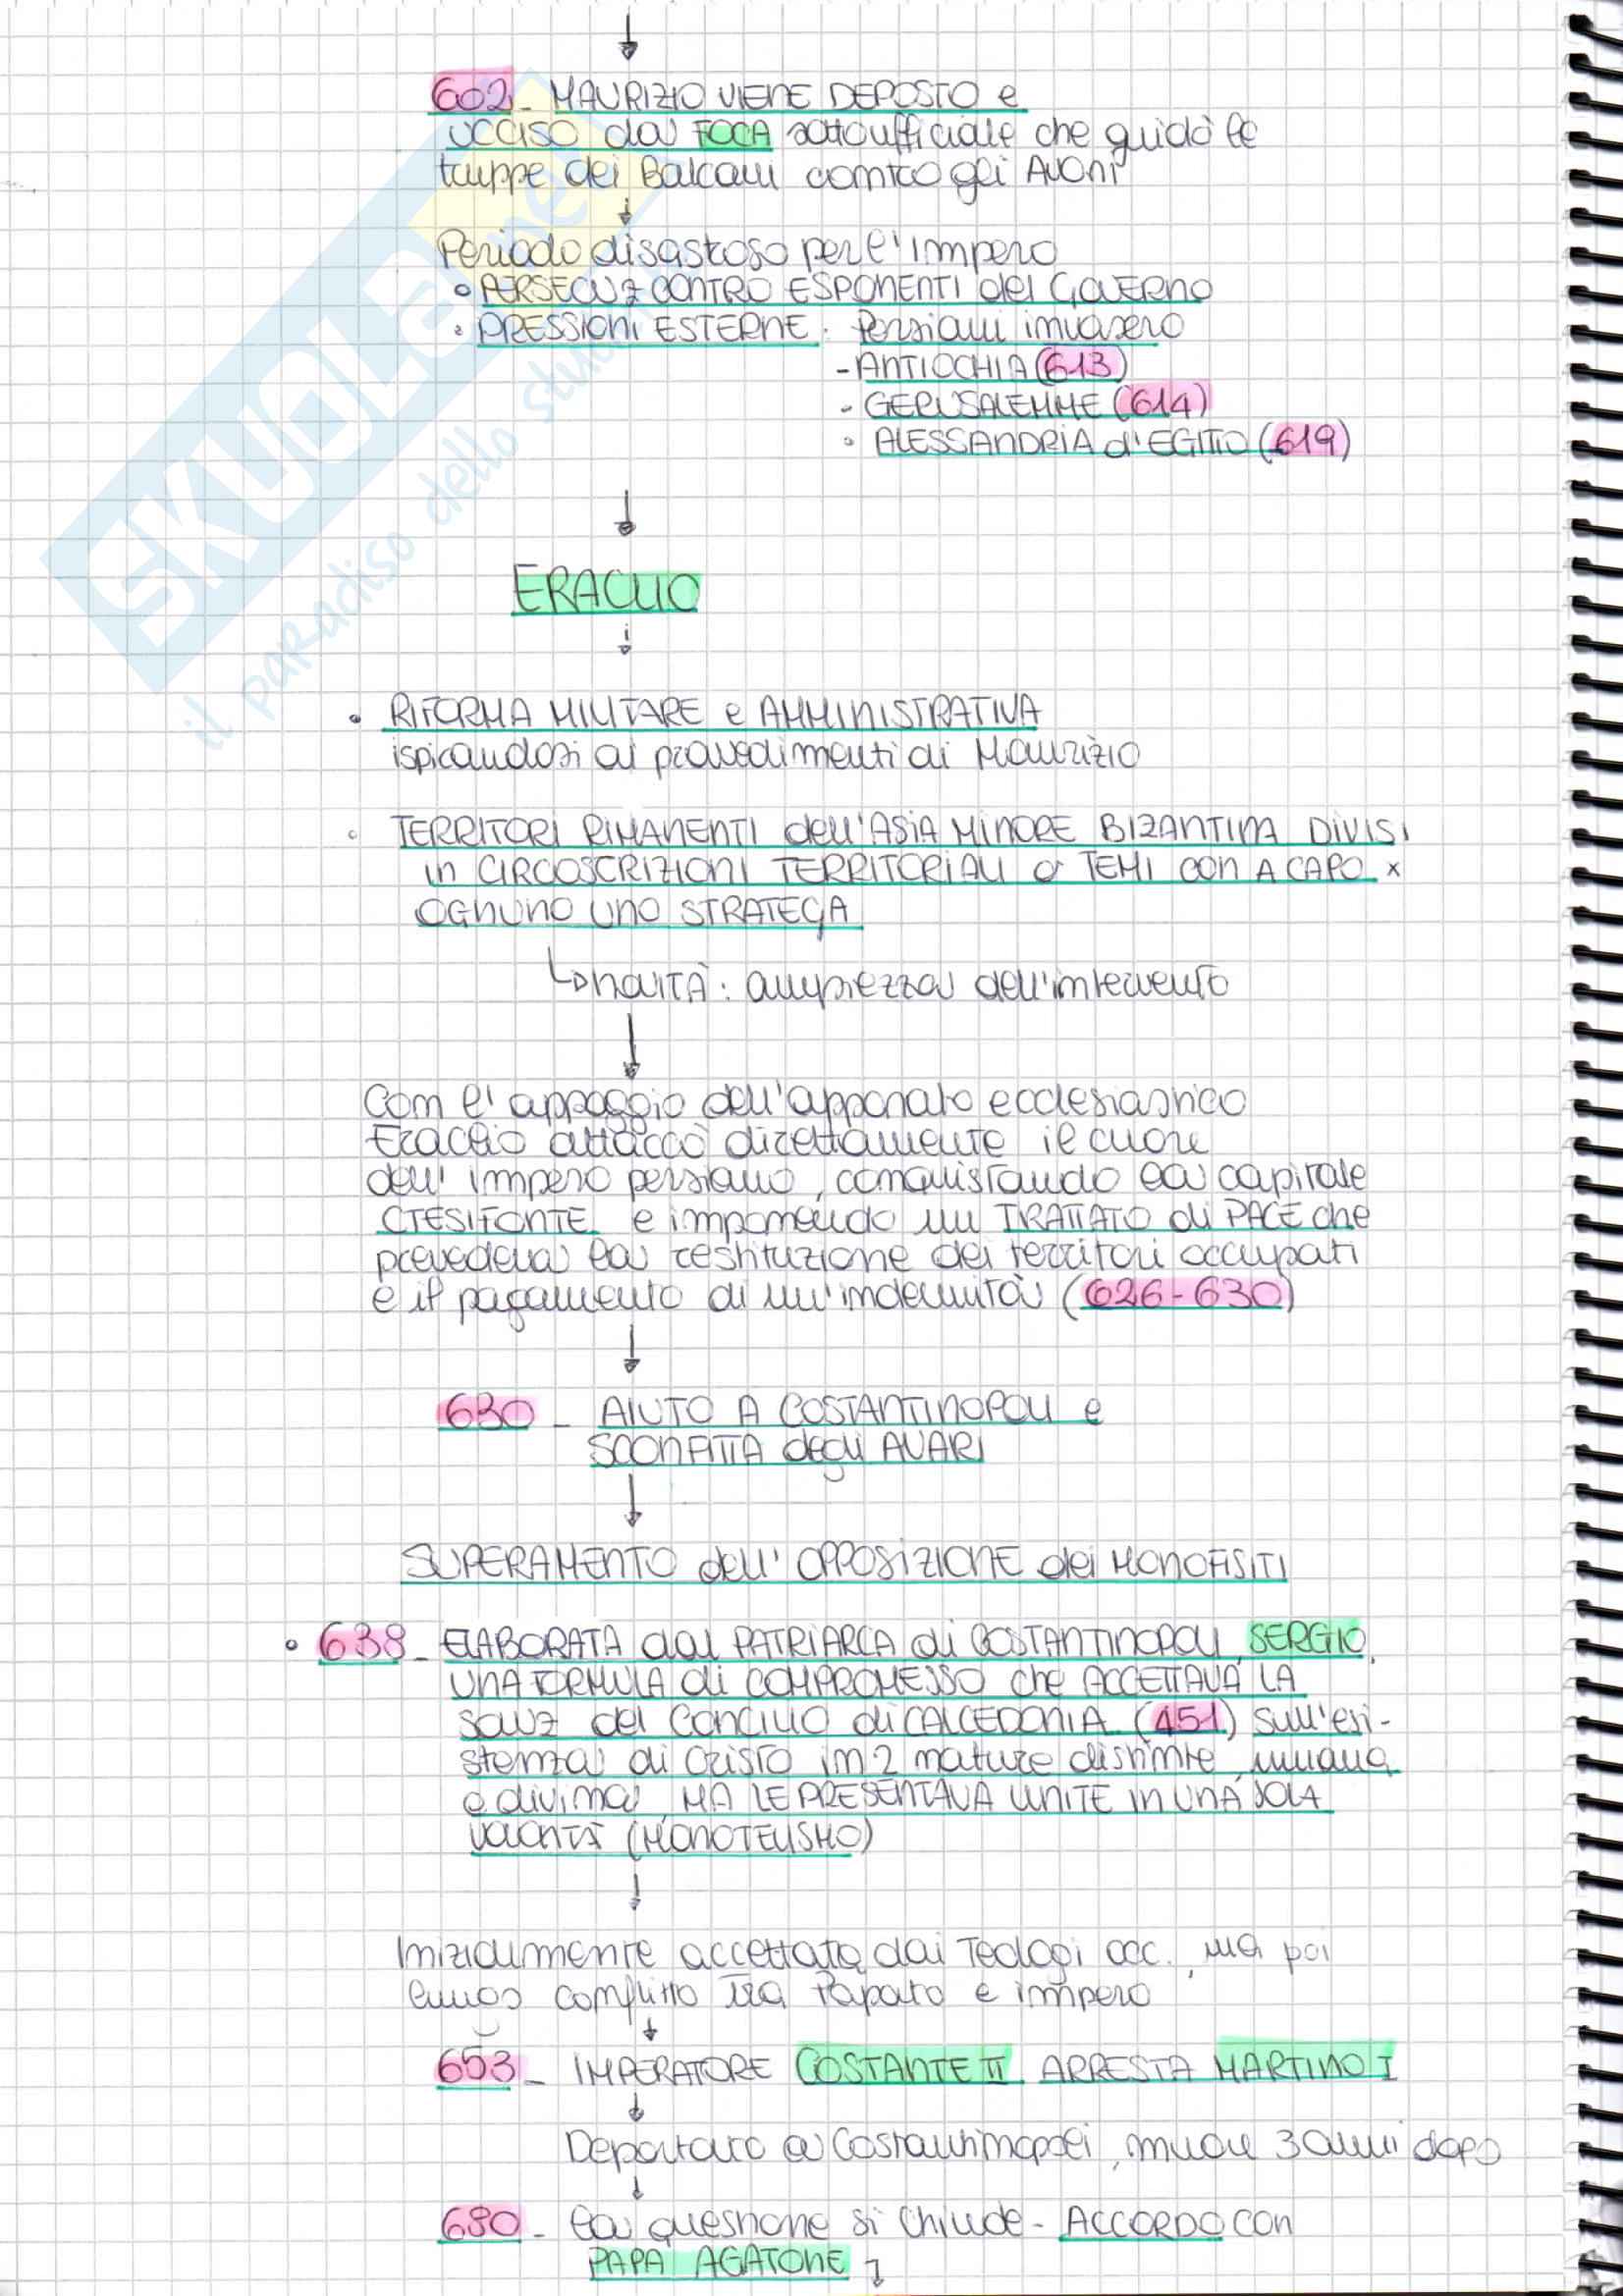 602 - MAURIZIO VIENE DEPOSTO e
UCCISO da FOCA sottoufficiale che guidò le
truppe dei Balcani contro gli Avari
Periodo disastroso per l'impero
• PERSECUZ CONTRO ESPONENTI del GOVERNO
• PRESSIONI ESTERNE: Persiani invasero
- ANTIOCHIA (613)
- GERUSALEMME (614)
• ALESSANDRIA d'EGITTO (619)
ERACLIO
• RIFORMA MILITARE e AMMINISTRATIVA
ispirandosi ai provvedimenti di Maurizio
• TERRITORI RIMANENTI dell'ASIA MINORE BIZANTINA DIVISI
in CIRCOSCRIZIONI TERRITORIALI o TEMI CON A CAPO x
OGNUNO UNO STRATEGA
↳ novità: ampiezza dell'intervento
Con l'appoggio dell'apparato ecclesiastico
Eraclio attaccò direttamente il cuore
dell'impero persiano, conquistando la capitale
CTESIFONTE e imponendo un TRATTATO di PACE che
prevedeva la restituzione dei territori occupati
e il pagamento di un'indennità (626-630)
630 - AIUTO A COSTANTINOPOLI e
SCONFITTA degli AVARI
SUPERAMENTO dell'OPPOSIZIONE dei MONOFISITI
• 638 - ELABORATA dal PATRIARCA di COSTANTINOPOLI, SERGIO,
UNA FORMULA di COMPROMESSO che ACCETTAVA LA
soluz del CONCILIO di CALCEDONIA (451) sull'esi-
stenza di Cristo in 2 nature distinte, umana
e divina, MA LE PRESENTAVA UNITE IN UNA SOLA
VOLONTÀ (MONOTELISMO)
Inizialmente accettata dai Teologi occ., ma poi
conflitto tra Papato e impero
653 - IMPERATORE COSTANTE II ARRESTA MARTINO I
Deportato a Costantinopoli, muore 3 anni dopo
680 - la questione si chiude - ACCORDO con
PAPA AGATONE
SKUOLA.net
il paradiso dello studente